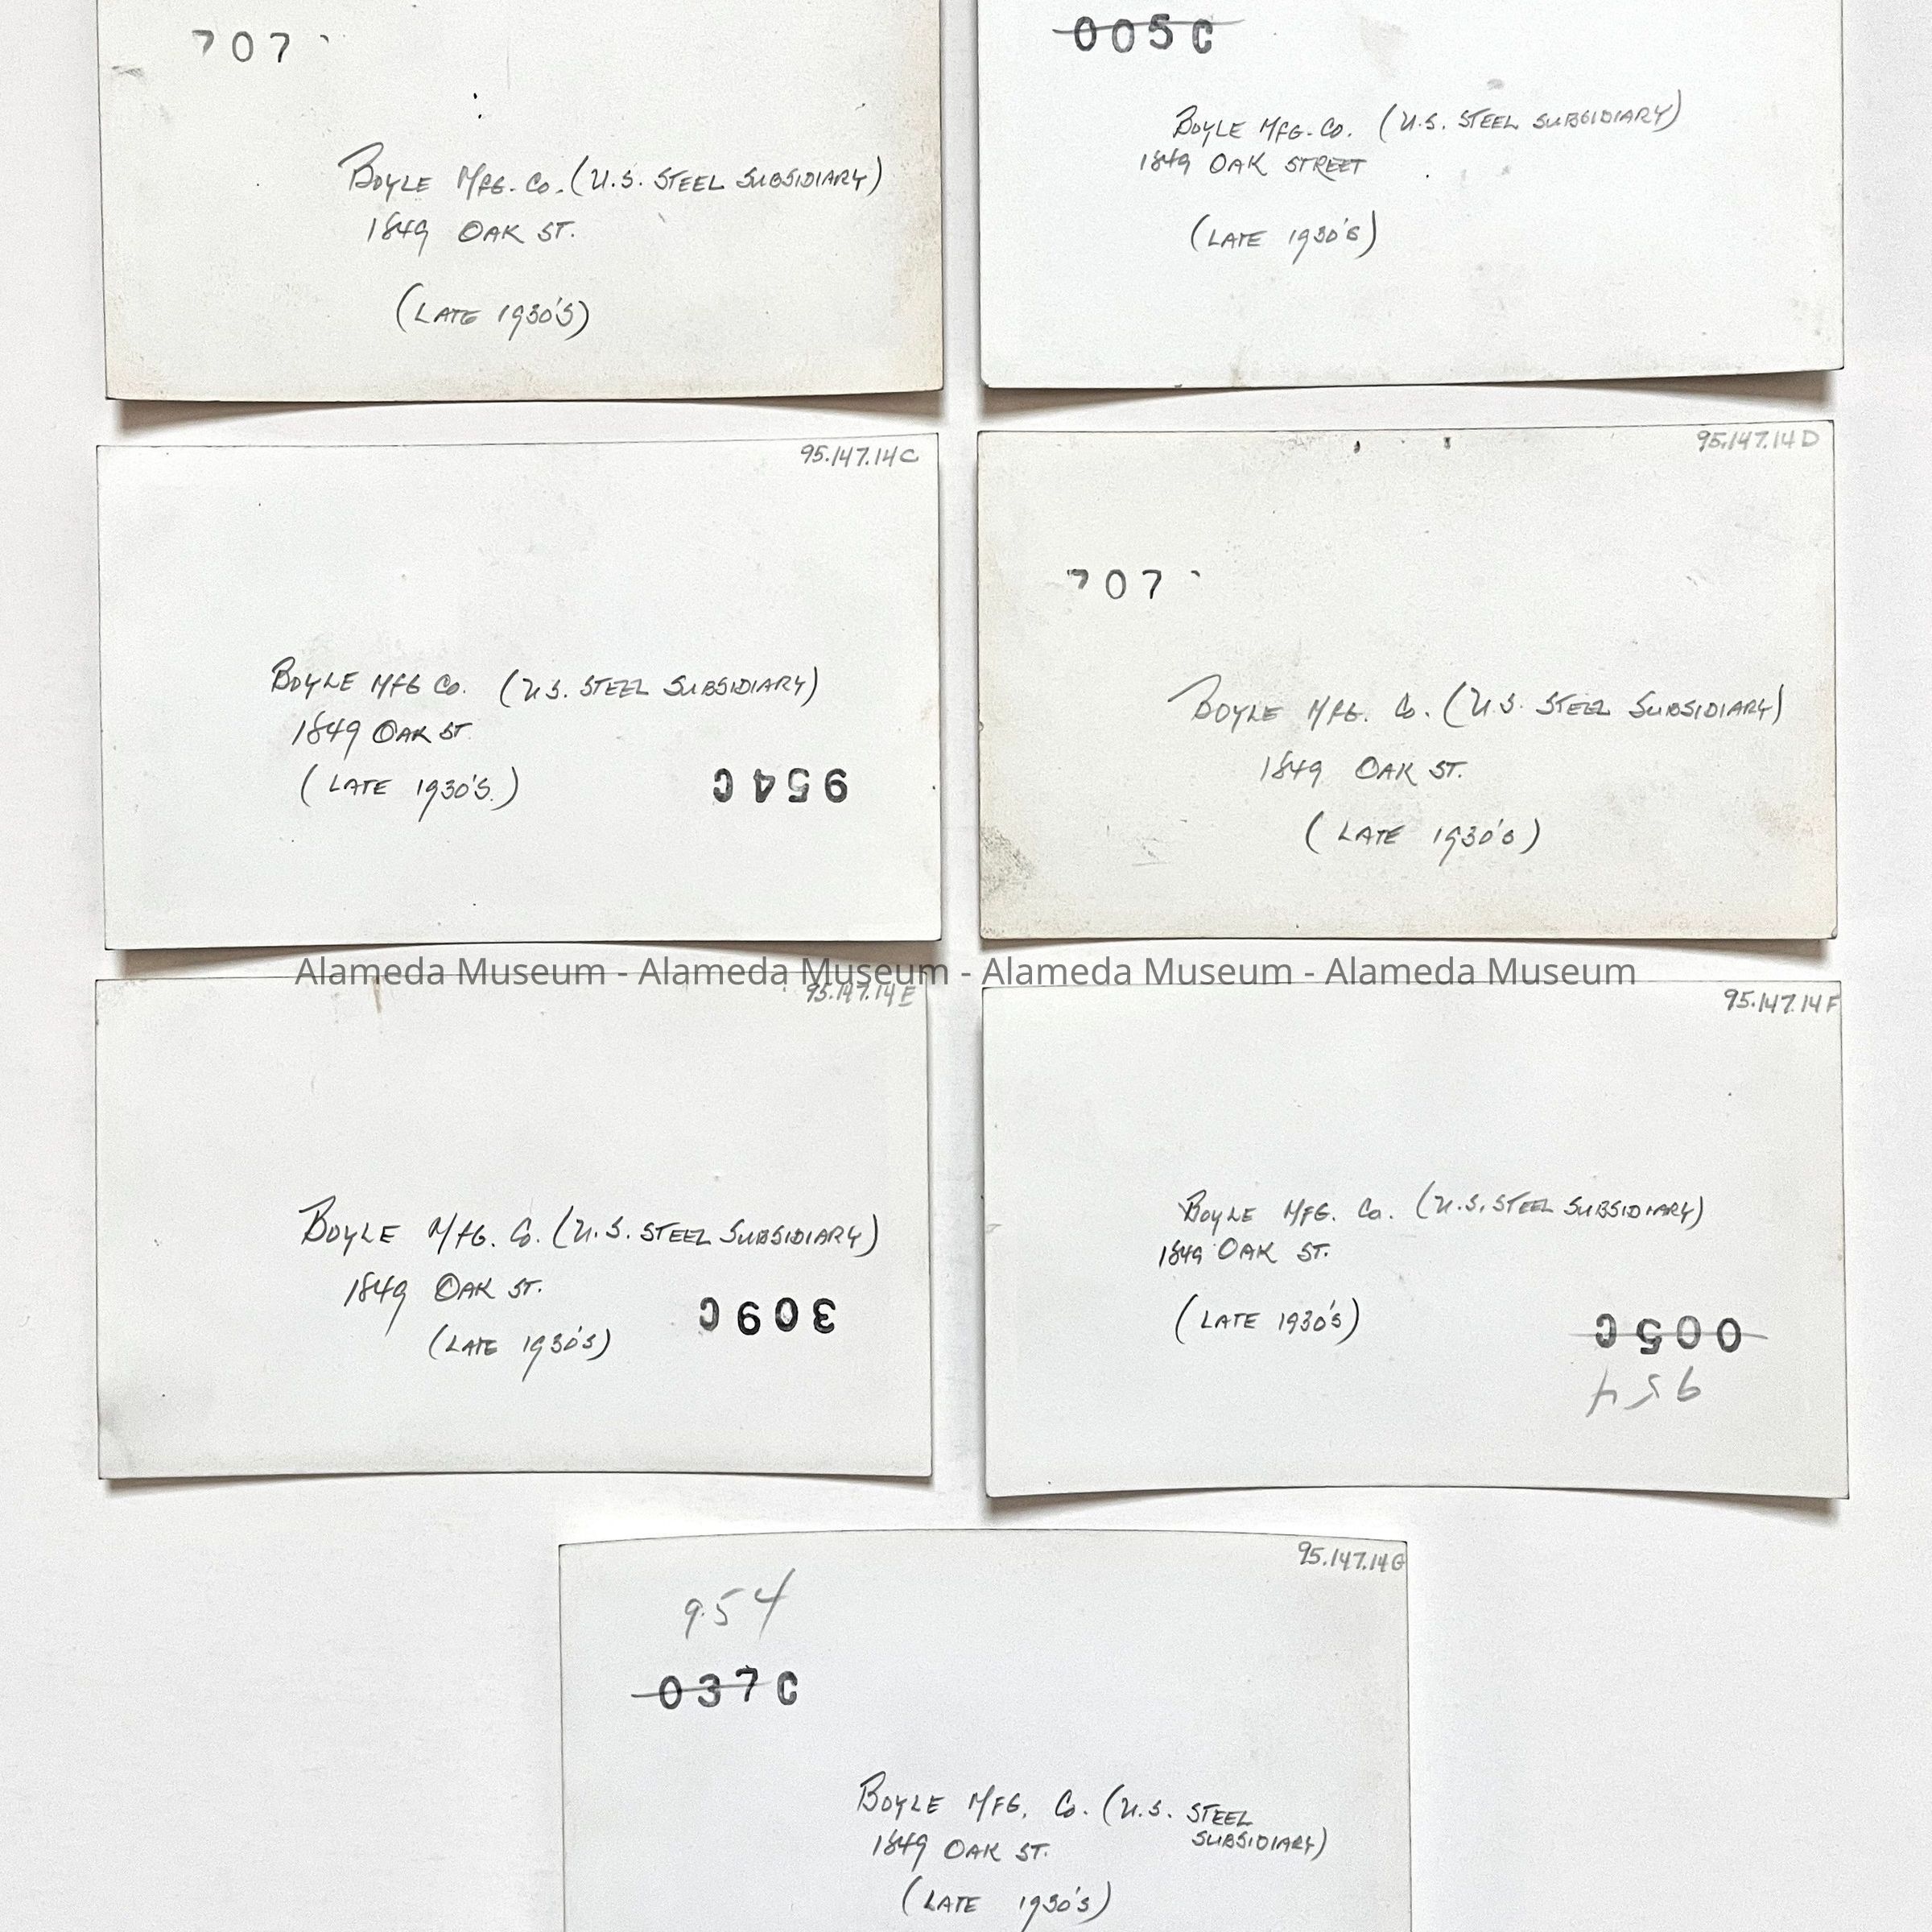 707
BOYLE MFG. CO. (U.S. STEEL SUBSIDIARY)
1849 OAK ST.
(LATE 1930'S)
005C
BOYLE MFG. CO. (U.S. STEEL SUBSIDIARY)
1849 OAK STREET
(LATE 1930'S)
95.147.14C
BOYLE MFG CO. (U.S. STEEL SUBSIDIARY)
1849 OAK ST.
(LATE 1930'S.)
954C
95.147.14D
707
BOYLE MFG. CO. (U.S. STEEL SUBSIDIARY)
1849 OAK ST.
(LATE 1930'S)
Alameda Museum - Alameda Museum - Alameda Museum - Alameda Museum
95.147.14E
BOYLE MFG. CO. (U.S. STEEL SUBSIDIARY)
1849 OAK ST.
(LATE 1930'S)
309C
95.147.14F
BOYLE MFG. CO. (U.S. STEEL SUBSIDIARY)
1849 OAK ST.
(LATE 1930'S)
005C
954
95.147.14G
954
037C
BOYLE MFG. CO. (U.S. STEEL
SUBSIDIARY)
1849 OAK ST.
(LATE 1930'S)